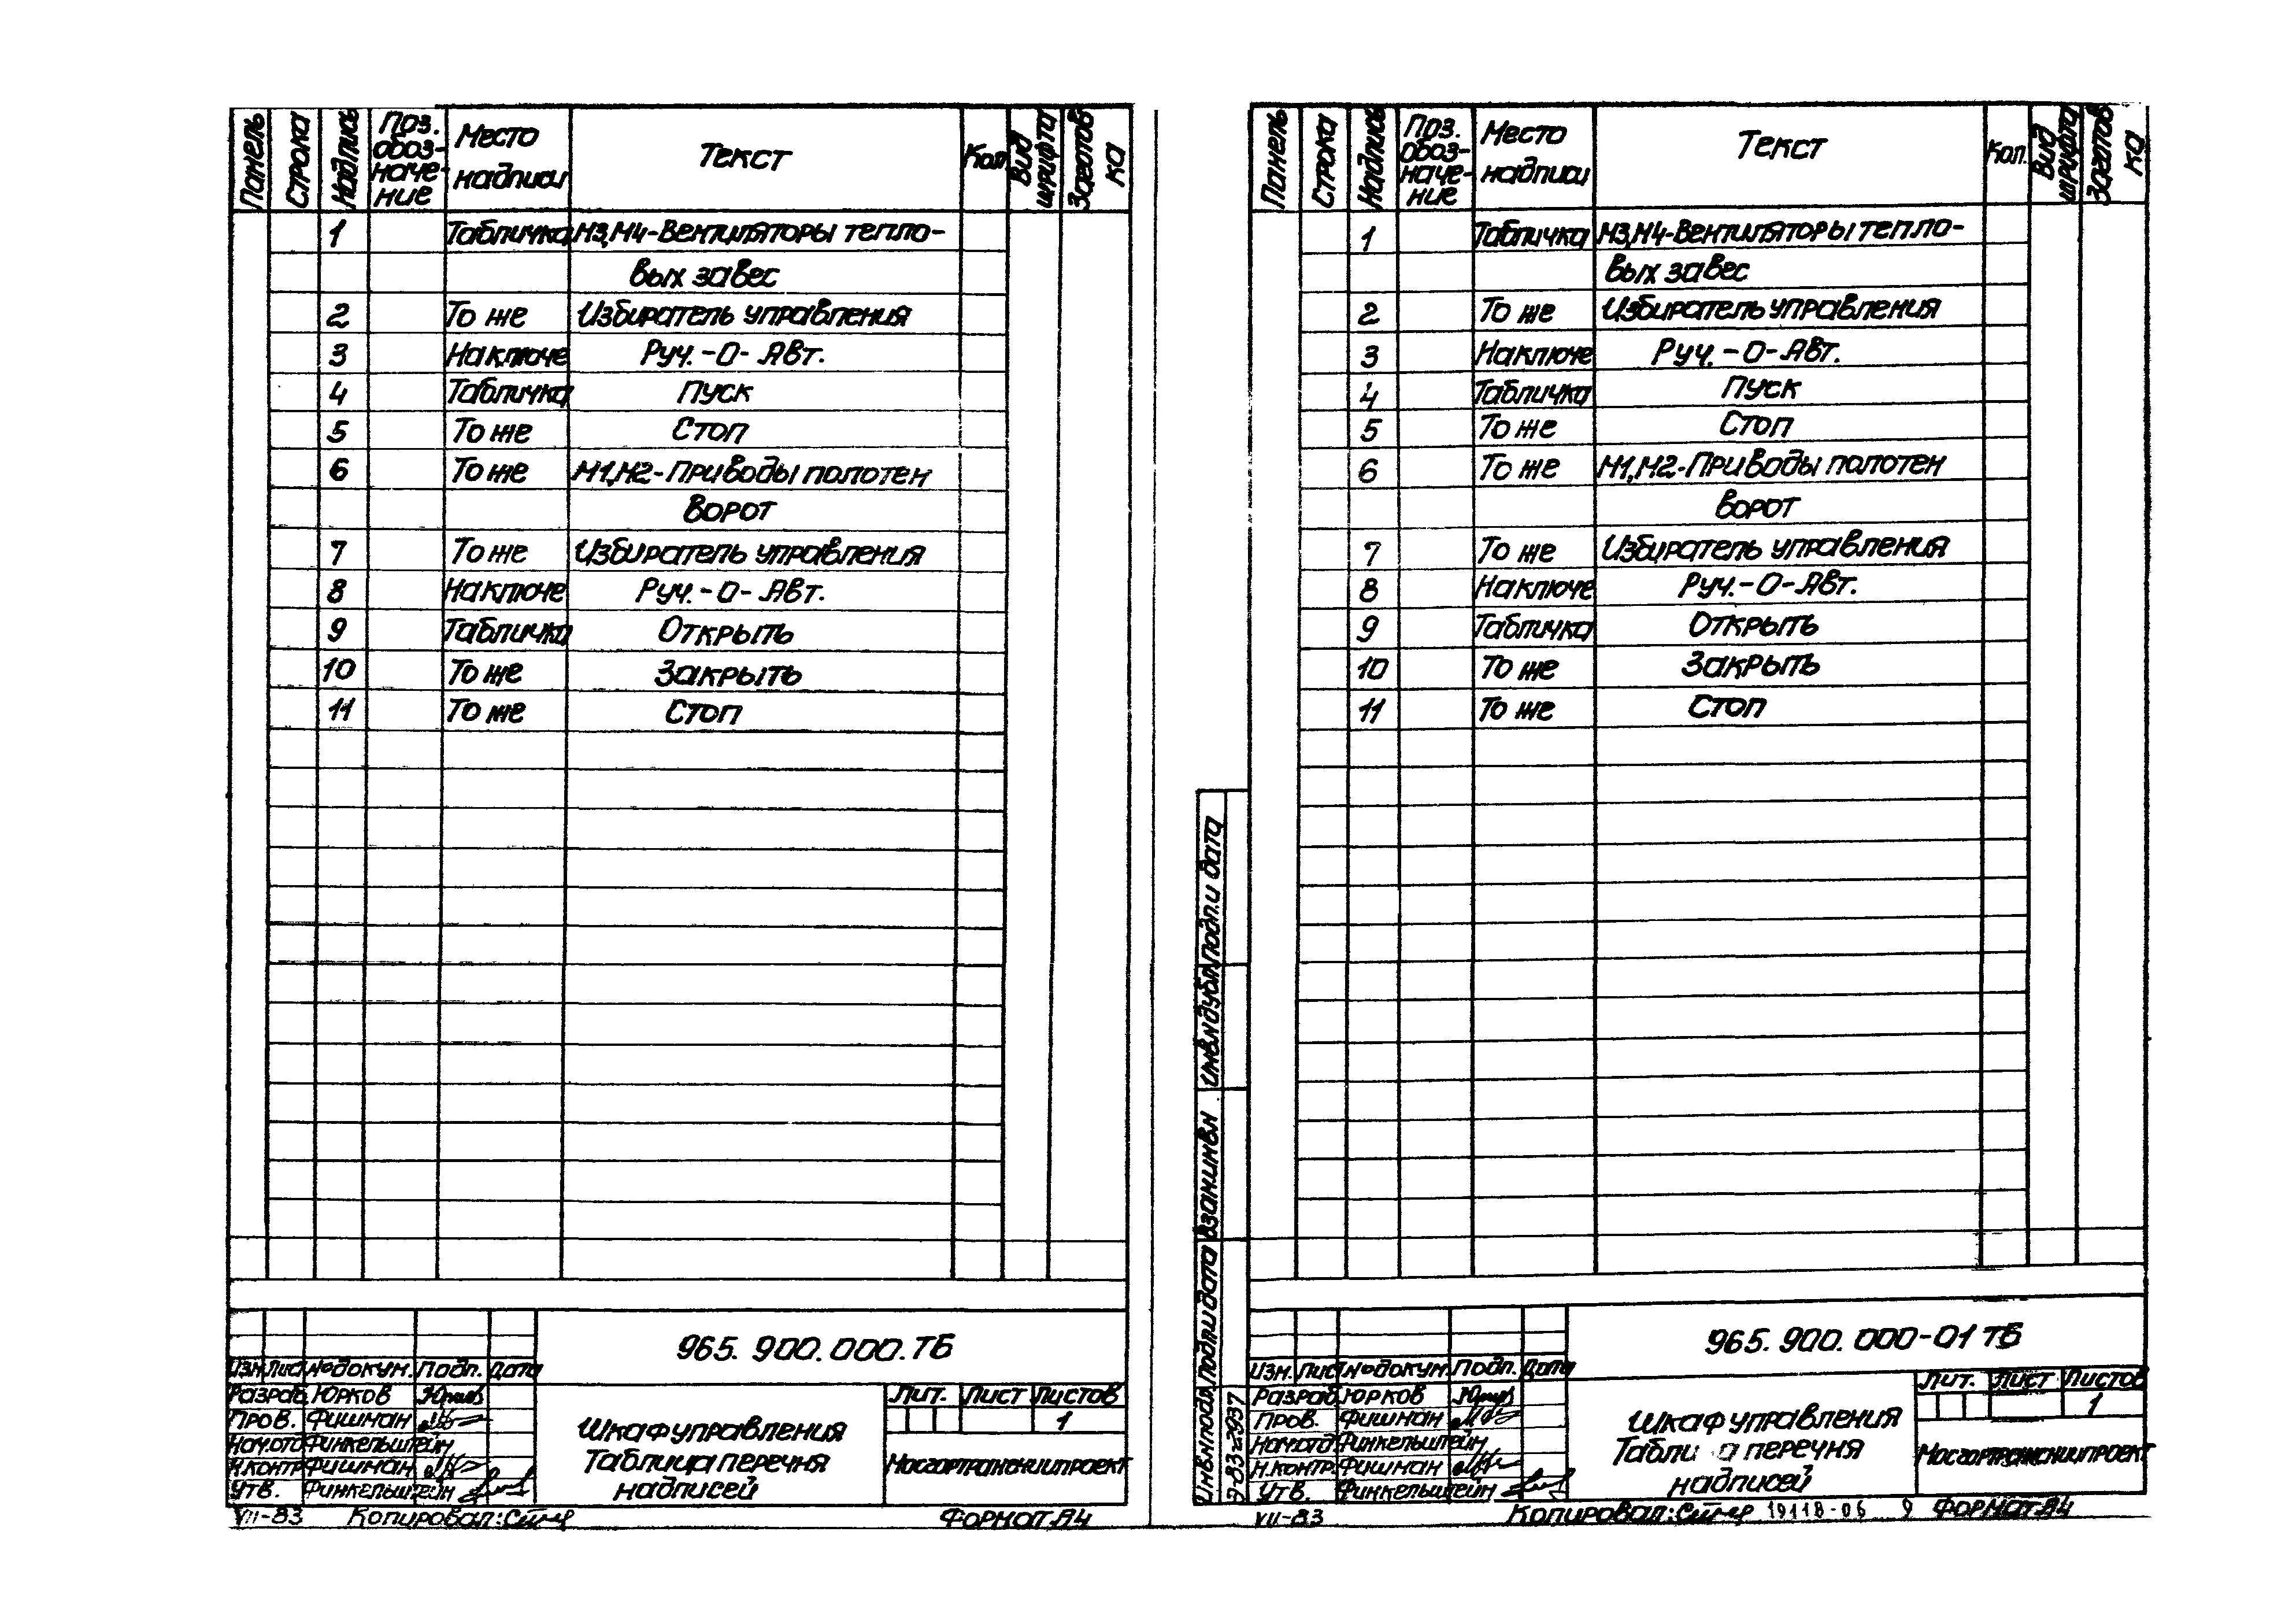 Панель Строка Надпись Поз. обоз- наче- ние Место надписи Текст Кол. Вид шрифта Заготов ка
1 Табличка М3,М4-Вентиляторы тепло-
вых завес
2 То же Избиратель управления
3 На ключе Руч.-О-Авт.
4 Табличка Пуск
5 То же Стоп
6 То же М1,М2-Приводы полотен
ворот
7 То же Избиратель управления
8 На ключе Руч.-О-Авт.
9 Табличка Открыть
10 То же Закрыть
11 То же Стоп
965.900.000.ТБ
Изм. Лист № докум. Подп. Дата
Разраб. Юрков
Пров. Фишман
Нач.отд Финкельштейн
Н.контр Фишман
Утв. Финкельштейн
Шкаф управления
Таблица перечня
надписей
Лит. Лист Листов
1
Мосгортрансниипроект
VII-83 Копировал: Формат А4
Панель Строка Надпись Поз. обоз- наче- ние Место надписи Текст Кол. Вид шрифта Заготов ка
1 Табличка М3,М4-Вентиляторы тепло-
вых завес
2 То же Избиратель управления
3 На ключе Руч.-О-Авт.
4 Табличка Пуск
5 То же Стоп
6 То же М1,М2-Приводы полотен
ворот
7 То же Избиратель управления
8 На ключе Руч.-О-Авт.
9 Табличка Открыть
10 То же Закрыть
11 То же Стоп
Инв.N подл. Подп. и дата Взам.инв.N Инв.N дубл. Подп. и дата
Э-83-2937
965.900.000-01 ТБ
Изм. Лист № докум. Подп. Дата
Разраб. Юрков
Пров. Фишман
Нач.отд Финкельштейн
Н.контр. Фишман
Утв. Финкельштейн
Шкаф управления
Табли а перечня
надписей
Лит. Лист Листов
1
Мосгортрансниипроект
VII-83 Копировал: 19118-06 9 Формат А4